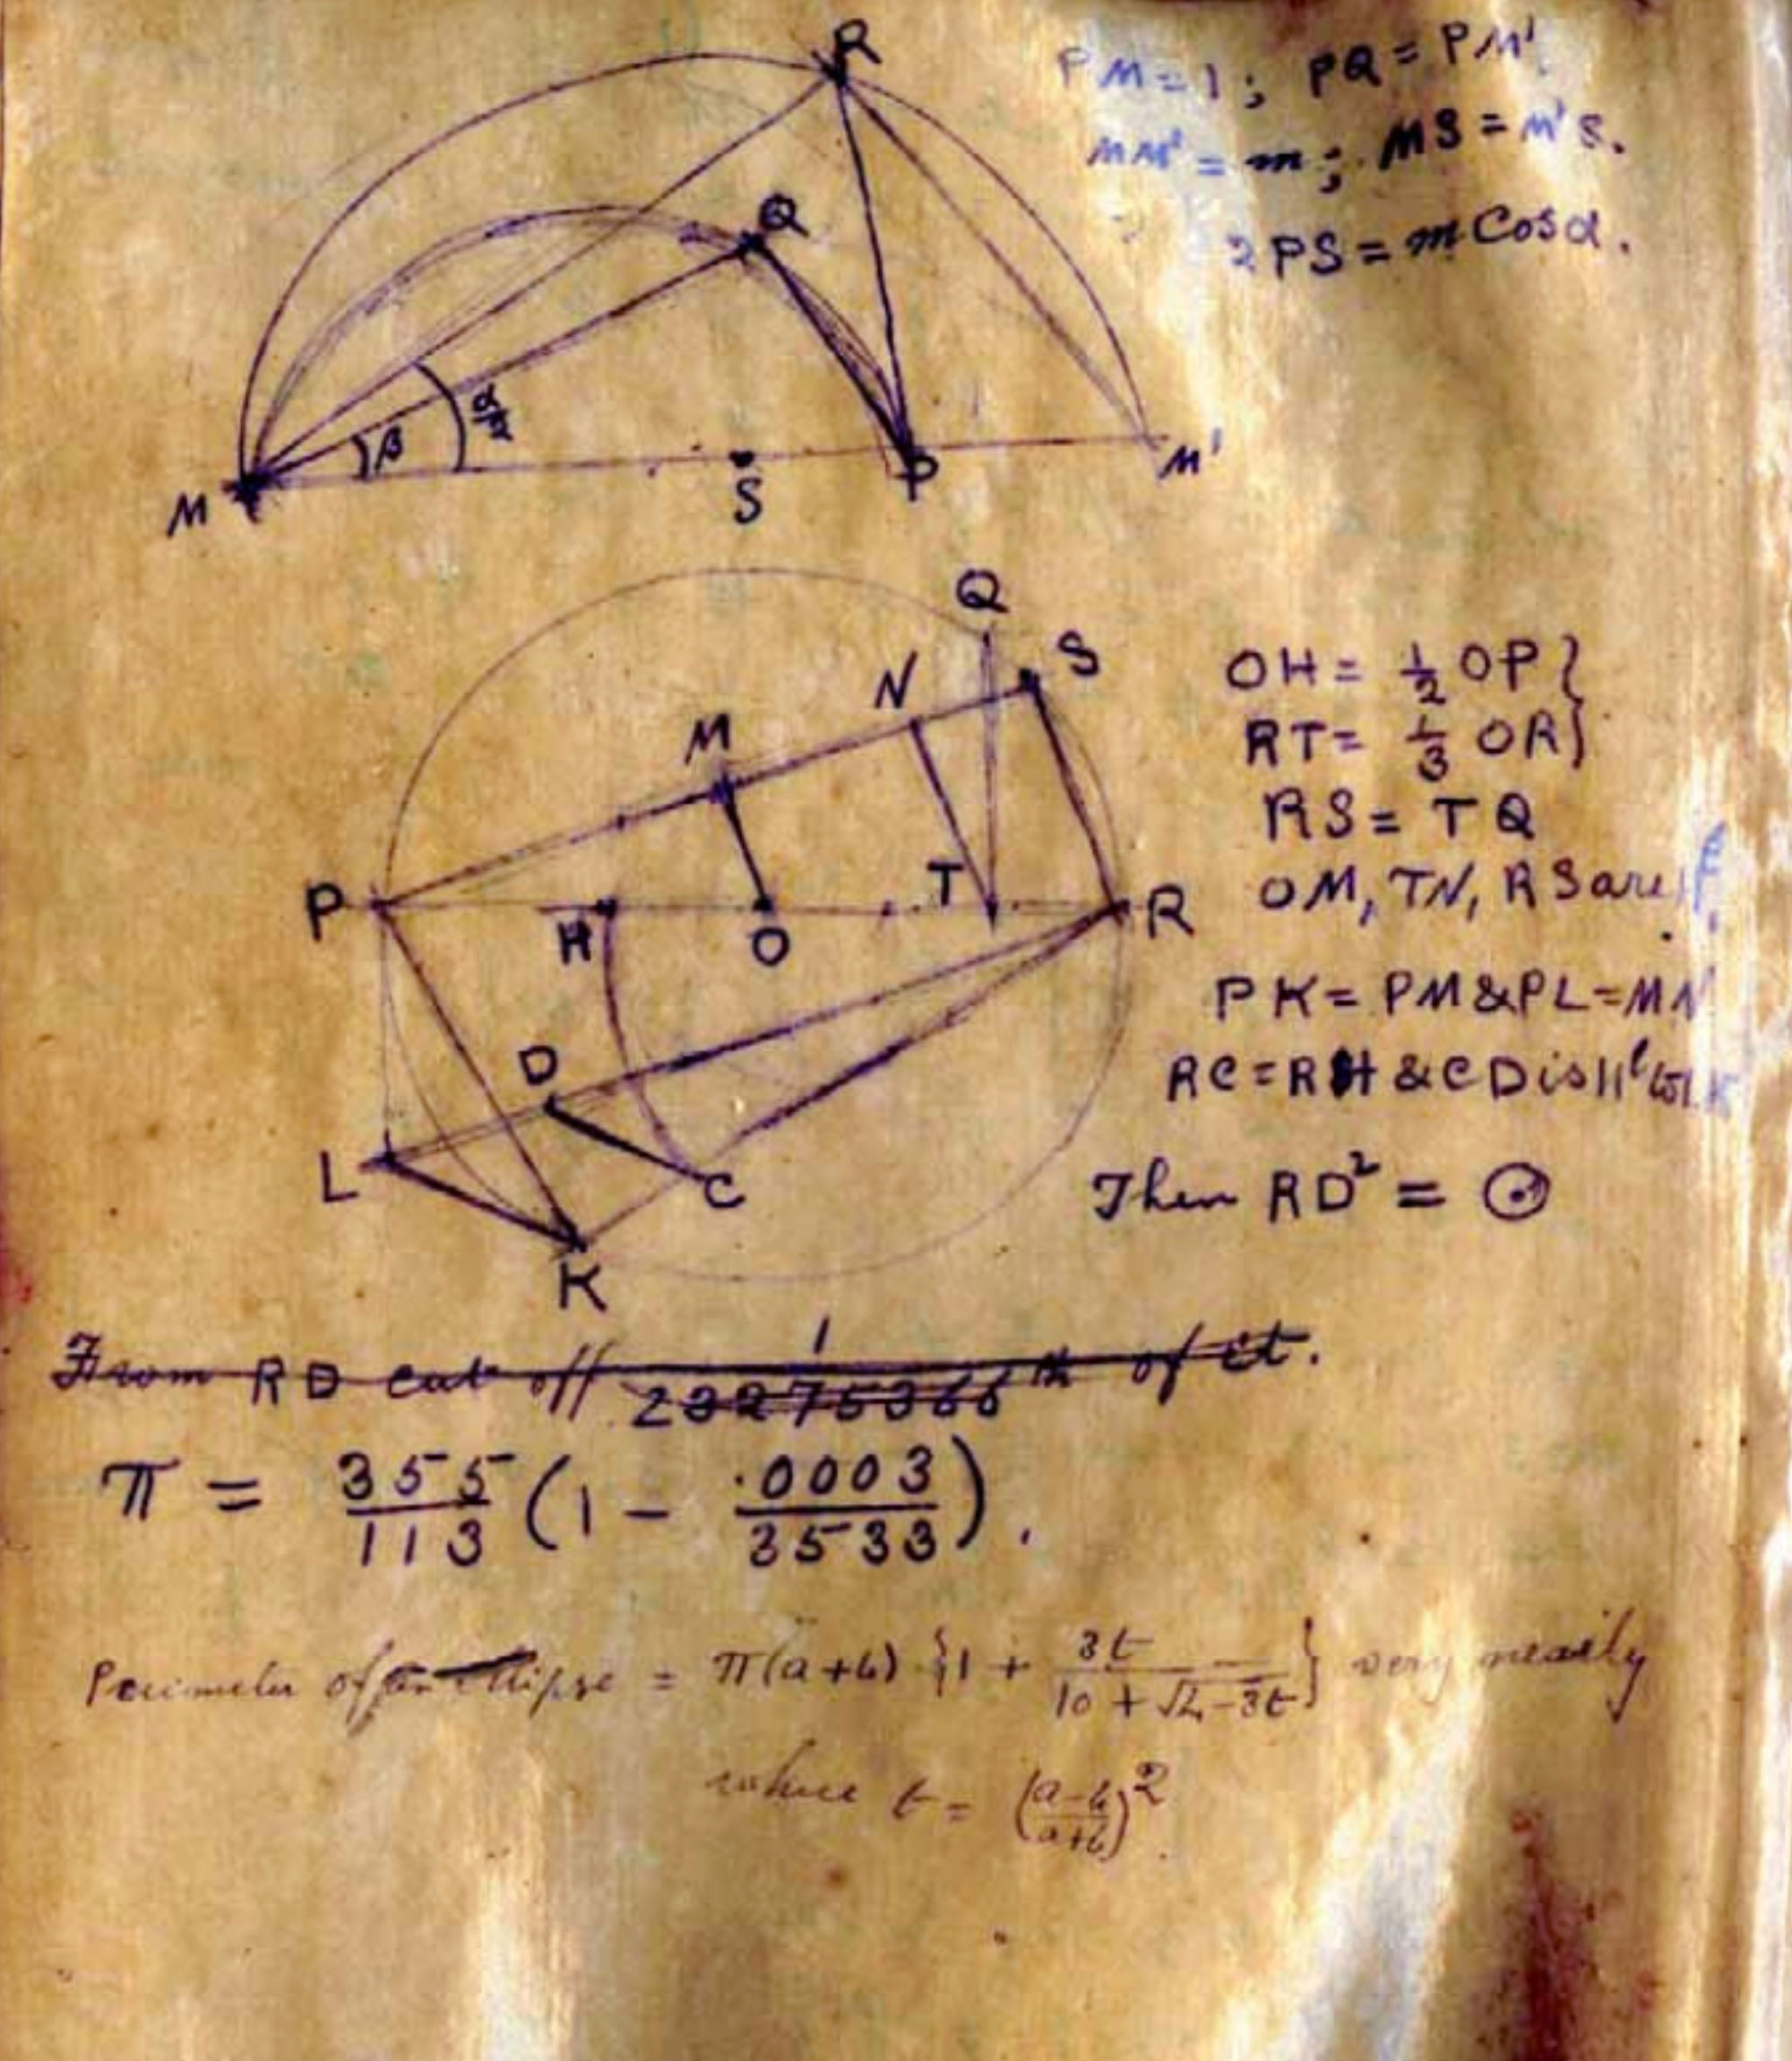 R
PM = 1 ; PQ = PM'.
MM' = m ; MS = M'S.
2PS = m Cos α.
Q
β
α/2
M
S
P
M'
Q
S
N
M
OH = 1/2 OP }
RT = 1/3 OR }
RS = TQ
P
H
O
T
R
OM, TN, RS are
PK = PM & PL = MN
D
RC = RH & CD is ||l to LK
L
C
Then RD² = ⊙
K
From RD cut off 1/23275366 th of it.
π = 355/113 (1 - .0003/3533).
Perimeter of an ellipse = π(a+b) {1 + 3t/(10 + √4-3t)} very nearly
where t = ((a-b)/(a+b))².